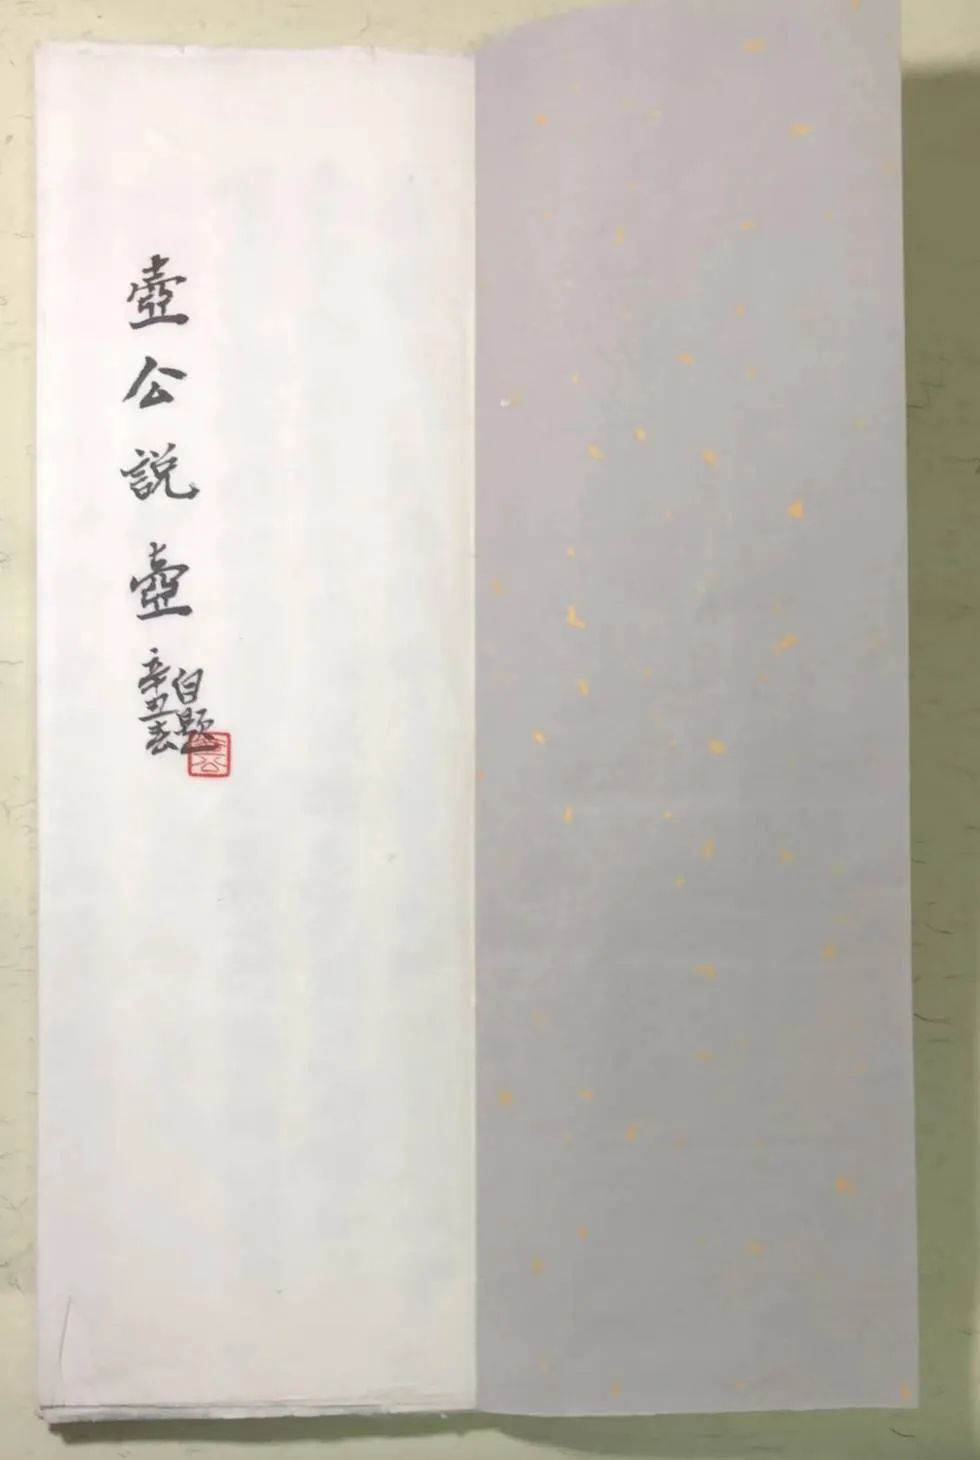 壺公說壺
自題
辛丑